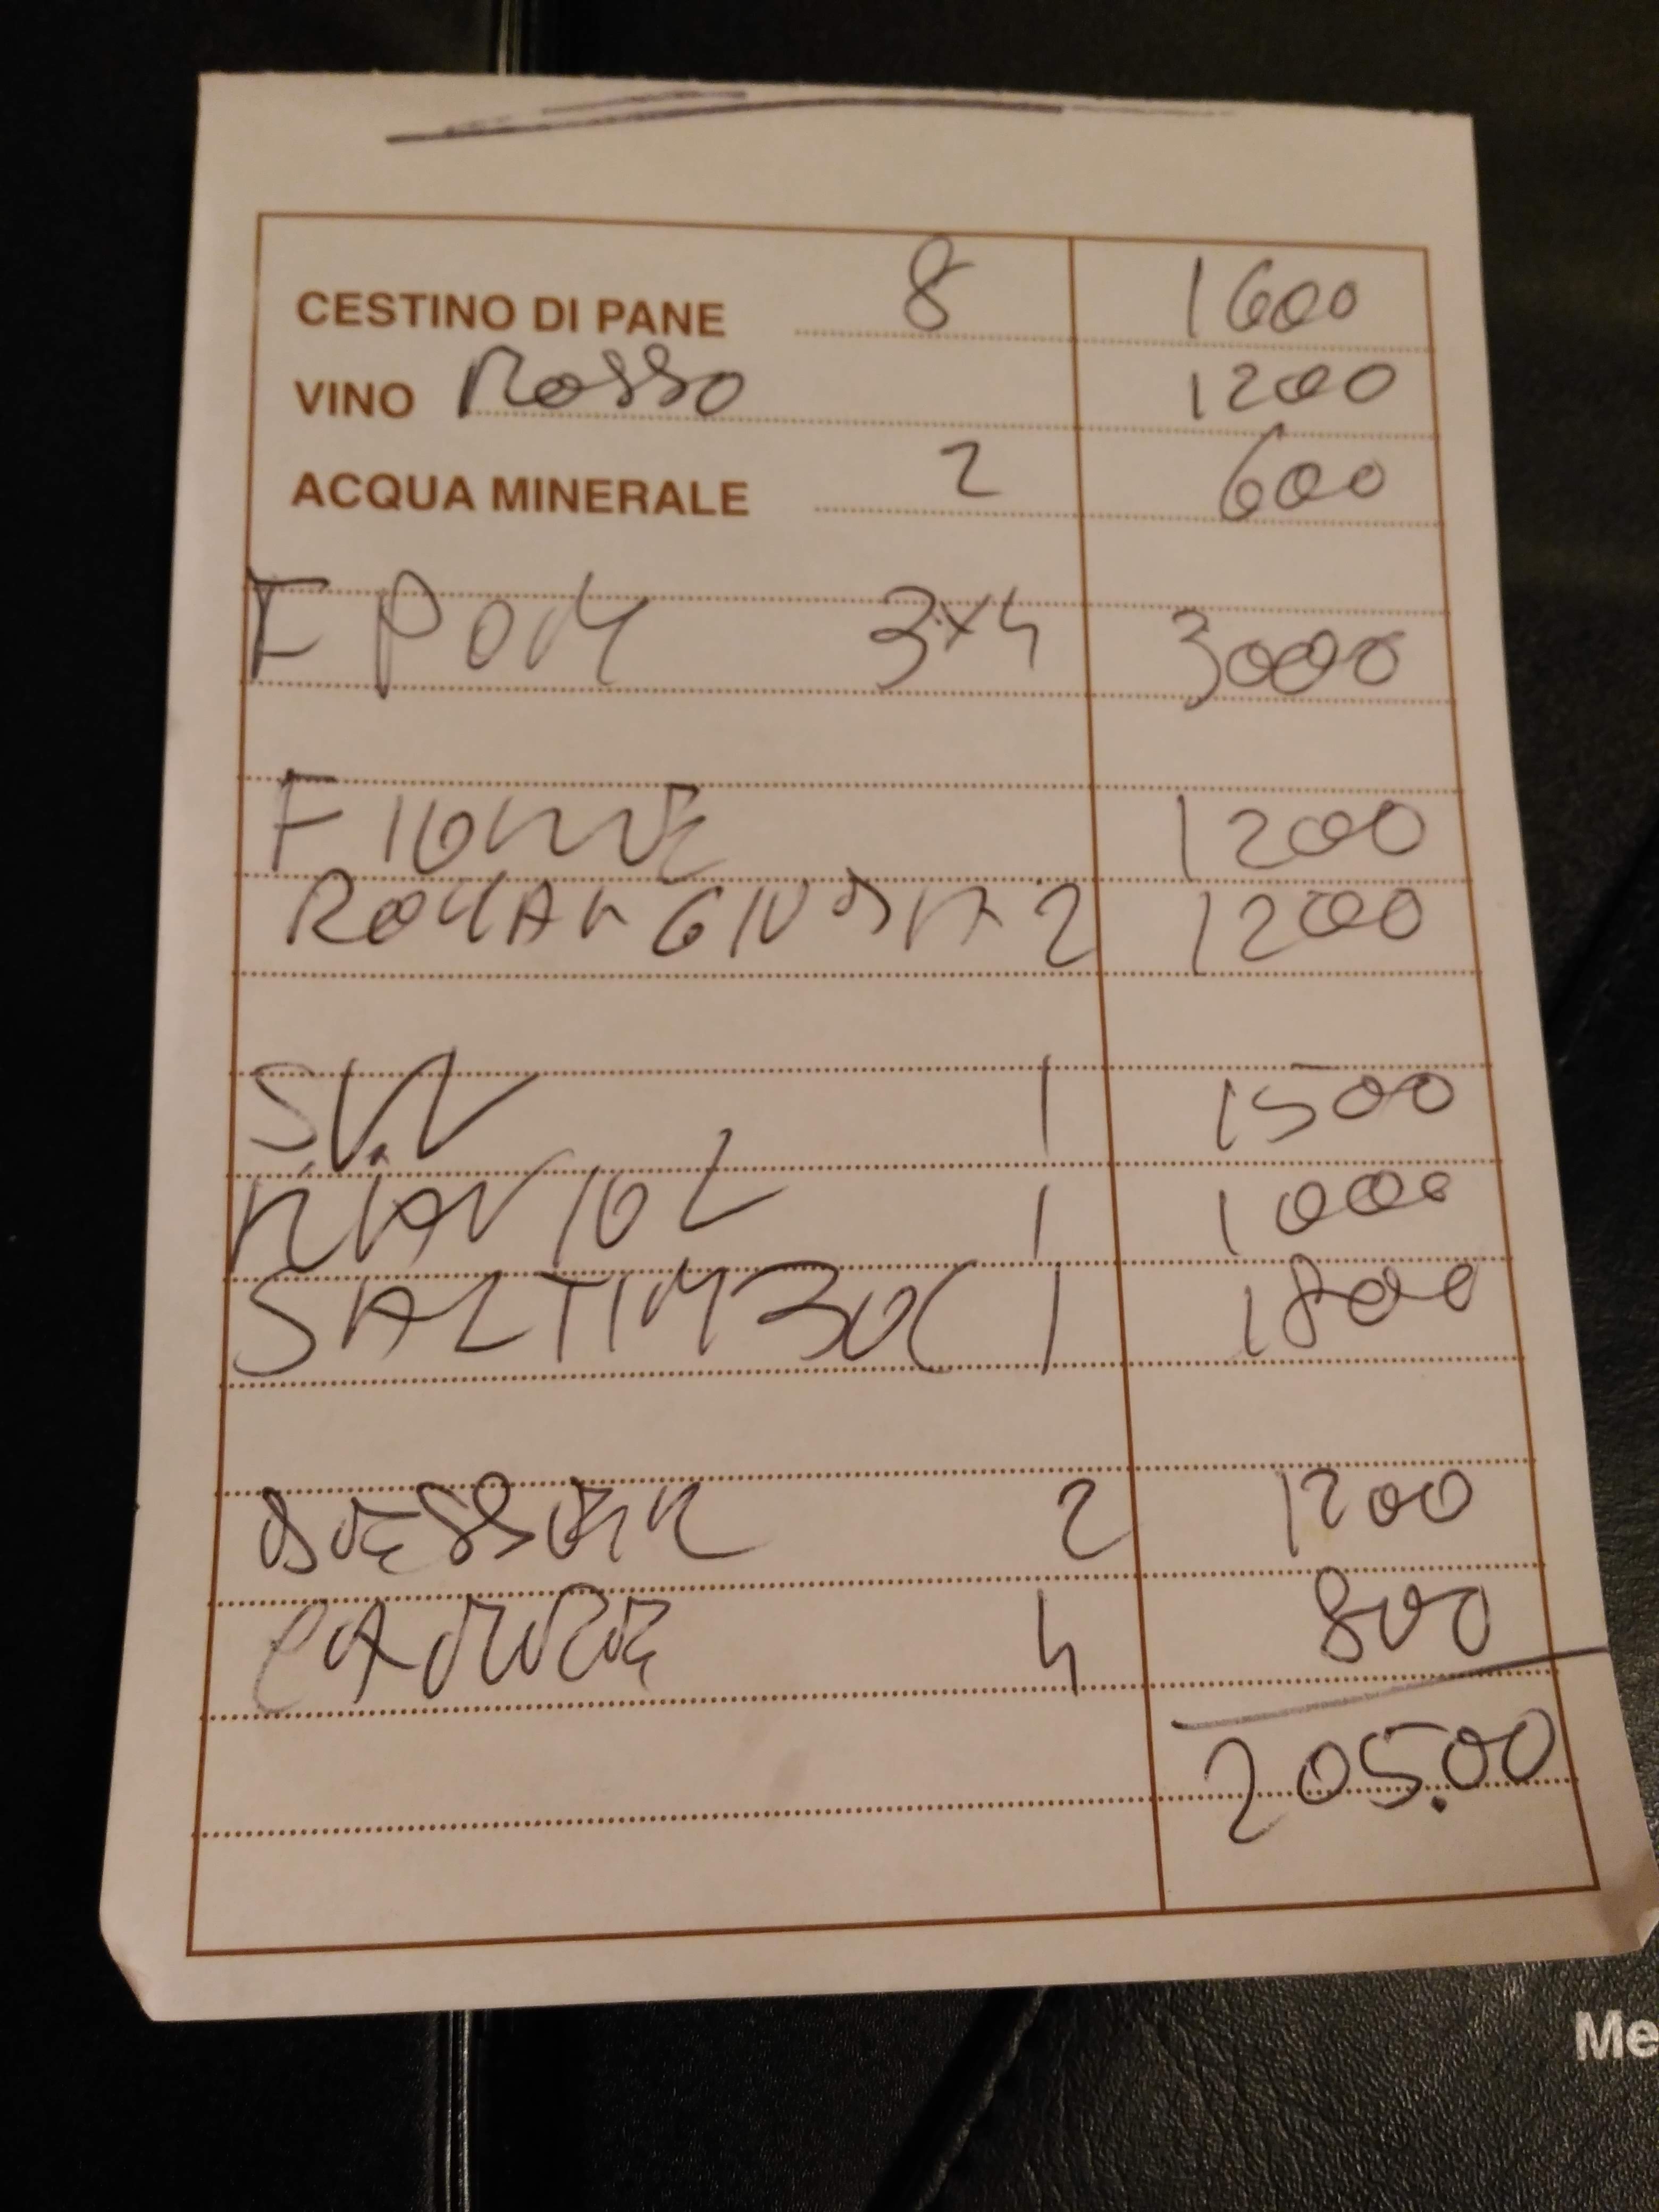 CESTINO DI PANE 8 1600
VINO Rosso 1200
ACQUA MINERALE 2 600
F POM 3x4 3000
FIORE 1200
ROMAN GIUDIA 2 1200
1 1500
RAVIOL 1 1000
SALTIMBOC 1 1800
DESSER 2 1200
4 800
205.00
Me